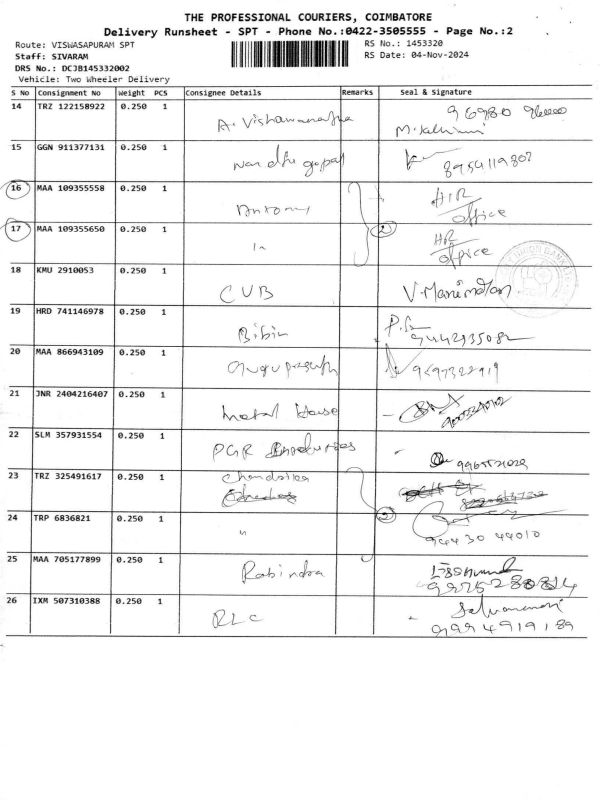 THE PROFESSIONAL COURIERS, COIMBATORE
Delivery Runsheet - SPT - Phone No.:0422-3505555 - Page No.:2
Route: VISWASAPURAM SPT RS No.: 1453320
Staff: SIVARAM RS Date: 04-Nov-2024
DRS No.: DCJB145332002
Vehicle: Two Wheeler Delivery
S No Consignment No Weight PCS Consignee Details Remarks Seal & Signature
14 TRZ 122158922 0.250 1 A. Vishwanatha
15 GGN 911377131 0.250 1 Nandhu gopal 8954119807
16 MAA 109355558 0.250 1 Antony HR
office
17 MAA 109355650 0.250 1 " 2 HR
office
18 KMU 2910053 0.250 1 CUB V. Manimaran
19 HRD 741146978 0.250 1 Bibin
20 MAA 866943109 0.250 1 Guruprasath
21 JNR 2404216407 0.250 1 Metal House
22 SLM 357931554 0.250 1 PGR
23 TRZ 325491617 0.250 1 Chandrika
24 TRP 6836821 0.250 1 " 2 94430 44010
25 MAA 705177899 0.250 1 Rabindra
26 IXM 507310388 0.250 1 RLC Selvamani
9994919189